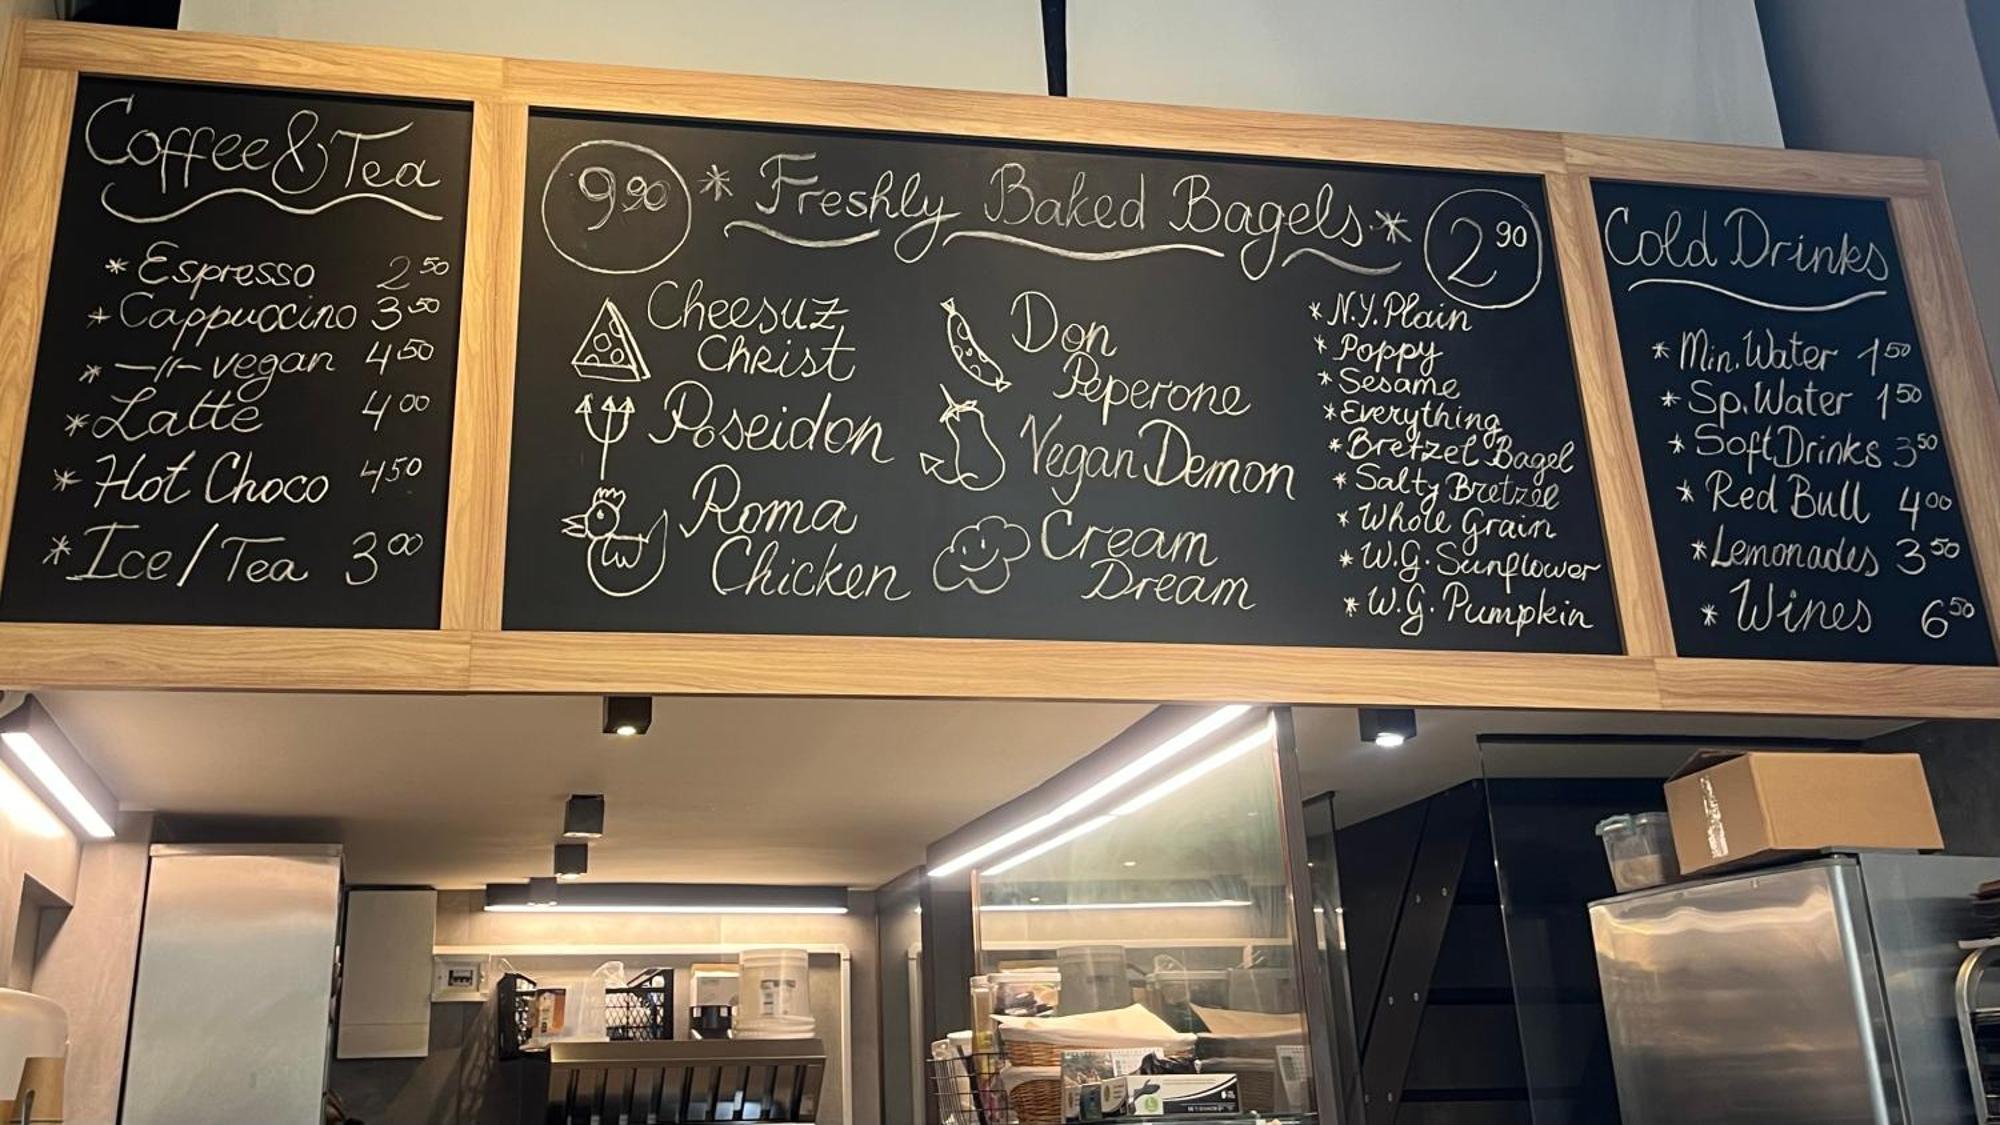 Coffee & Tea
* Espresso 2 50
* Cappuocino 3 50
* —//— vegan 4 50
* Latte 4 00
* Hot Choco 4 50
* Ice/Tea 3 00
9 90 * Freshly Baked Bagels * 2 90
Cheesuz
Christ
Poseidon
Roma
Chicken
Don
Peperone
Vegan Demon
Cream
Dream
* N.Y. Plain
* Poppy
* Sesame
* Everything
* Bretzel Bagel
* Salty Bretzel
* Whole Grain
* W.G. Sunflower
* W.G. Pumpkin
Cold Drinks
* Min. Water 1 50
* Sp. Water 1 50
* Soft Drinks 3 50
* Red Bull 4 00
* Lemonades 3 50
* Wines 6 50